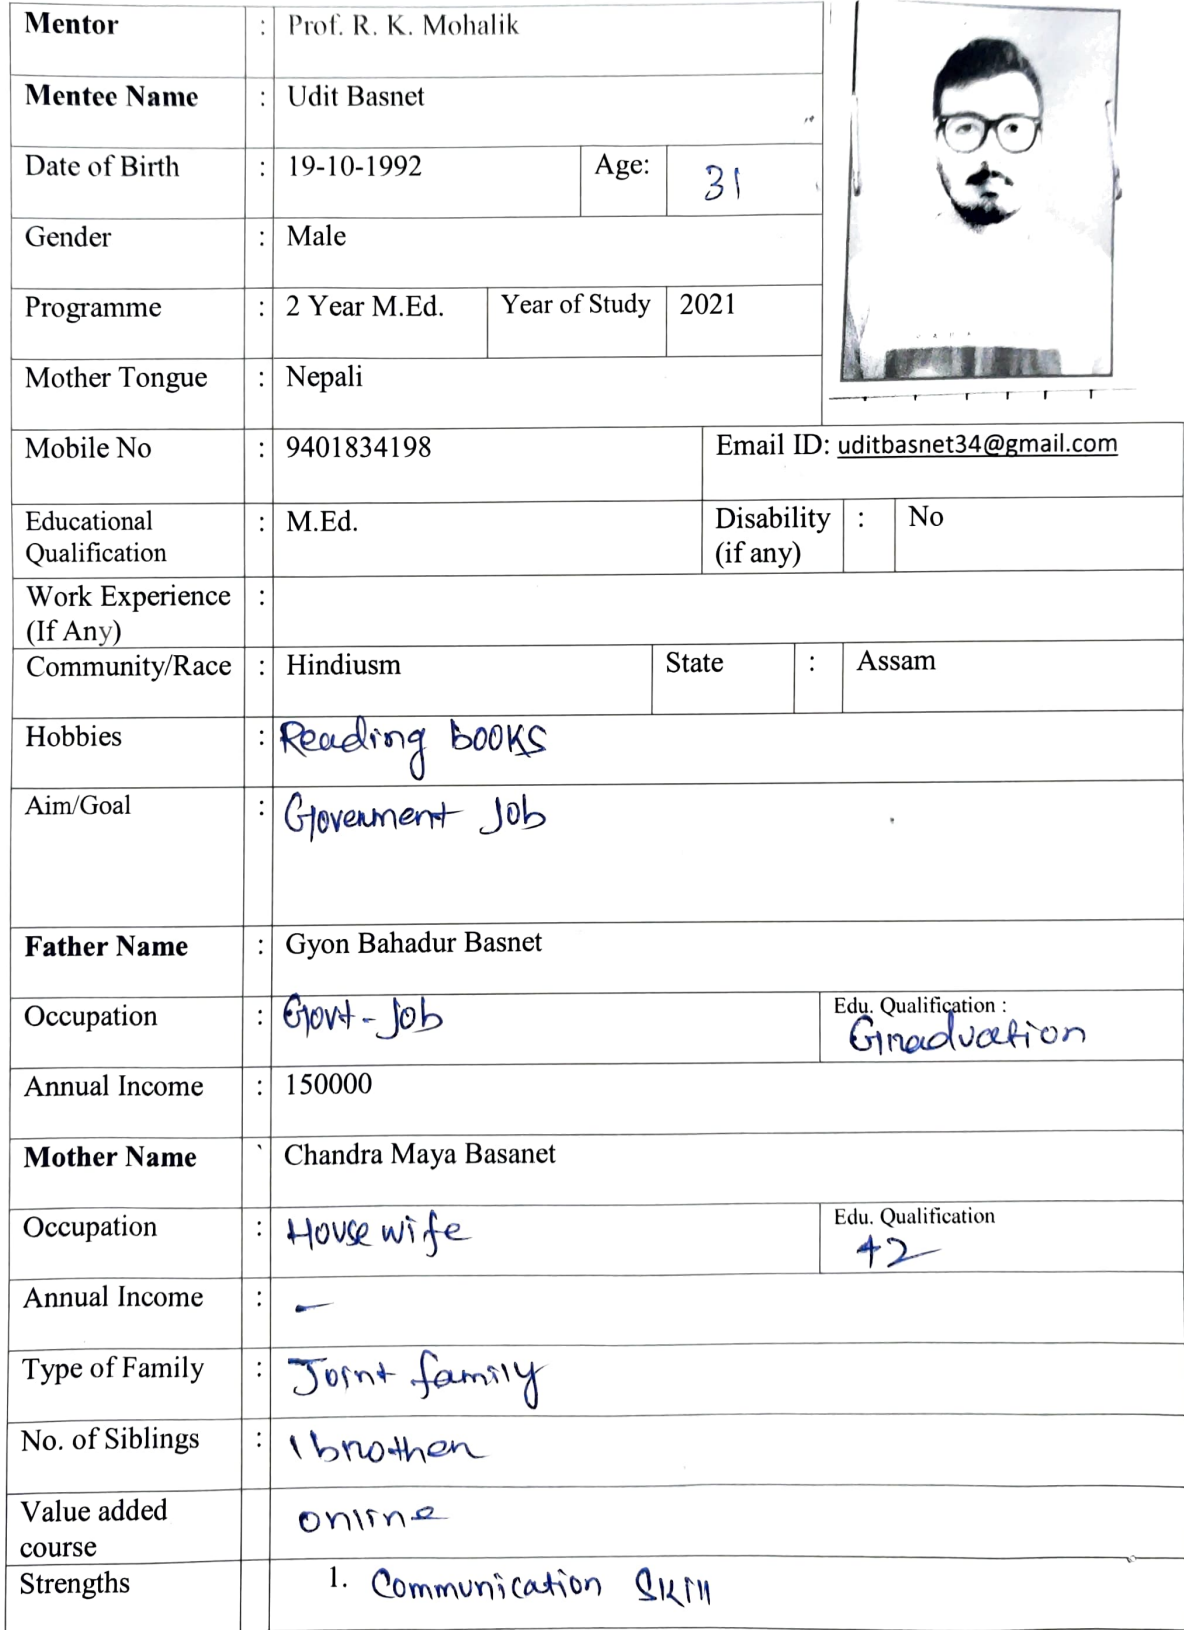 Mentor : Prof. R. K. Mohalik
Mentee Name : Udit Basnet
Date of Birth : 19-10-1992 Age: 31
Gender : Male
Programme : 2 Year M.Ed. Year of Study 2021
Mother Tongue : Nepali
Mobile No : 9401834198 Email ID: uditbasnet34@gmail.com
Educational Qualification : M.Ed. Disability (if any) : No
Work Experience (If Any) :
Community/Race : Hindiusm State : Assam
Hobbies : Reading books
Aim/Goal : Goverment Job
Father Name : Gyon Bahadur Basnet
Occupation : Govt-job Edu. Qualification :
Graduation
Annual Income : 150000
Mother Name Chandra Maya Basanet
Occupation : House wife Edu. Qualification
+2
Annual Income : -
Type of Family : Joint family
No. of Siblings : 1 brother
Value added course online
Strengths 1. Communication Skill